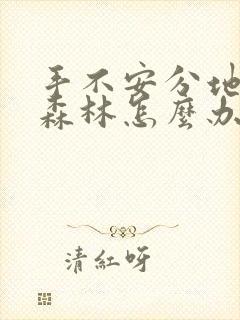 手不安分地
森林怎麼办
清紅呀